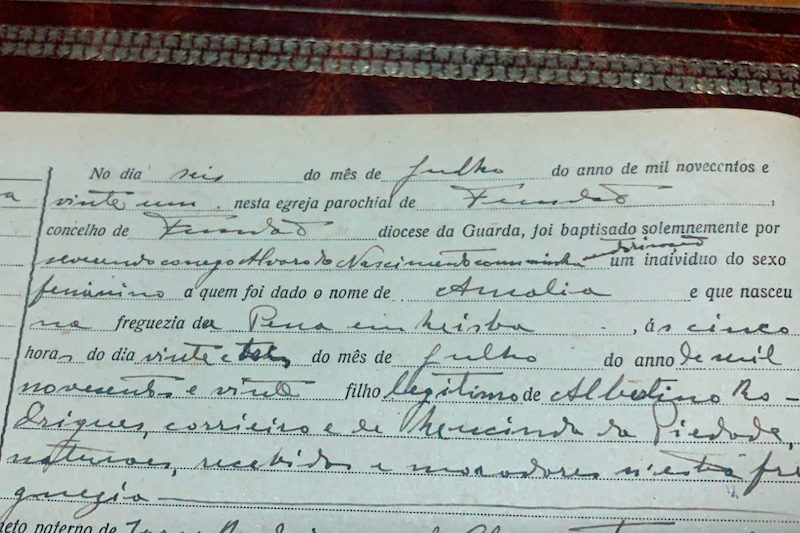 a
No dia seis do mês de Julho do anno de mil novecentos e
vinte um, nesta egreja parochial de Fundão,
concelho de Fundão diocese da Guarda, foi baptisado solemnemente por
reverendo conego Alvaro do Nascimento com minha um individuo do sexo
feminino a quem foi dado o nome de Amalia e que nasceu
na freguezia da Pena em Lisboa, ás cinco
horas do dia vinte e tres do mês de Julho do anno de mil
novesentos e vinte filho legitimo de Albertino Ro-
drigues, correeiro e de Lucinda da Piedade,
naturaes, recebidos e moradores n'esta fre
guezia
neto paterno de